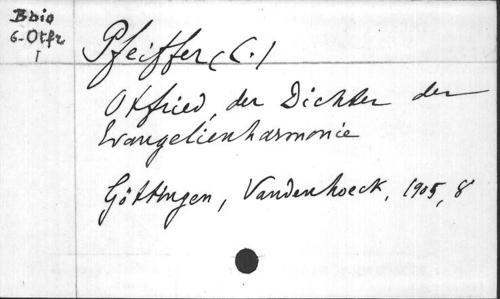 Bbio
6-Otfr
I
Pfeiffer (C.)
Otfried, der Dichter der
Evangelienharmonie
Göttingen, Vandenhoeck, 1905, 8